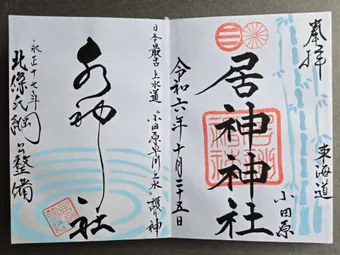 奉拝
東海道
小田原
居神神社
令和六年十月二十五日
日本最古上水道 小田原早川上水 護り神
水神社
永正十七年
北條氏綱公整備